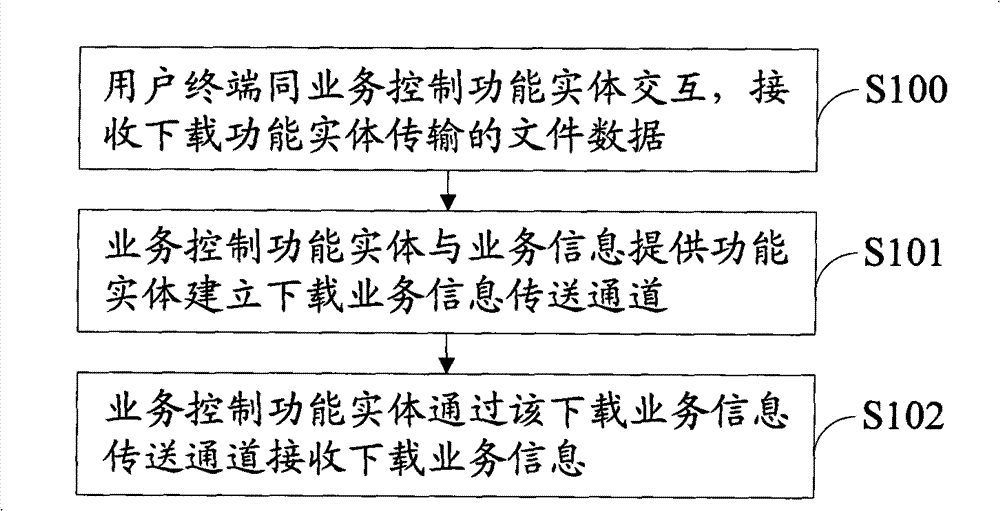 用户终端同业务控制功能实体交互，接
收下载功能实体传输的文件数据
S100
业务控制功能实体与业务信息提供功能
实体建立下载业务信息传送通道
S101
业务控制功能实体通过该下载业务信息
传送通道接收下载业务信息
S102